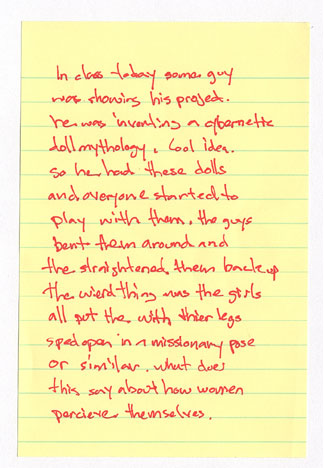 In class today some guy
was showing his project.
he was inventing a cybernette
doll mythology. Cool idea.
so he had these dolls
and everyone started to
play with them. the guys
bent them around and
the straightened them back up
the wierd thing was the girls
all put the with thier legs
sped open in a missionary pose
or similar. what does
this say about how women
percieve themselves.